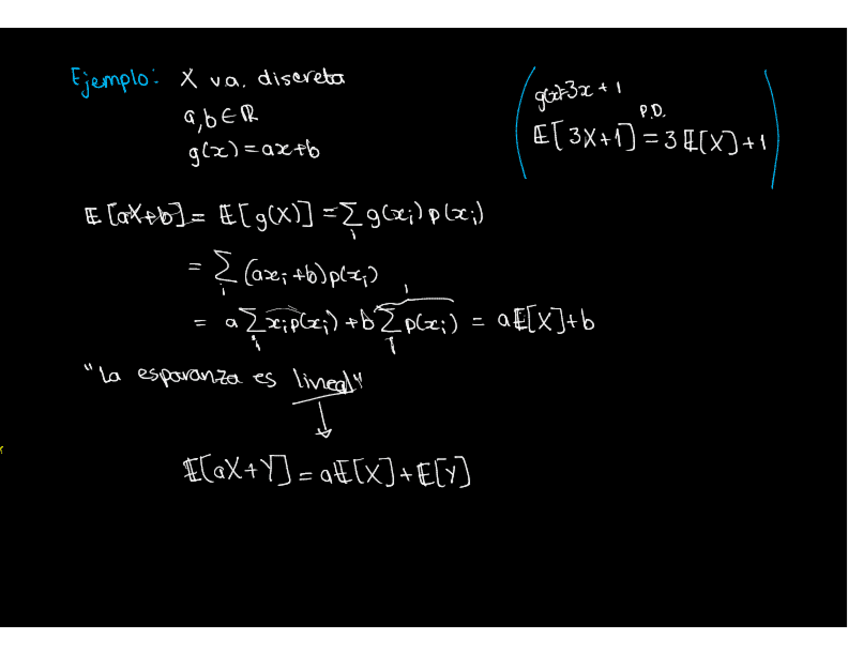 Ejemplo: X v.a. discreta
a,b ∈ ℝ
g(x) = ax+b
g(x)=3x+1
P.D.
𝔼[3X+1] = 3𝔼[X]+1
𝔼[aX+b] = 𝔼[g(X)] = ∑_i g(x_i) p(x_i)
= ∑_i (ax_i+b)p(x_i)
1
= a∑_i x_i p(x_i) + b∑_i p(x_i) = a𝔼[X]+b
"La esperanza es lineal"
𝔼[aX+Y] = a𝔼[X]+𝔼[Y]